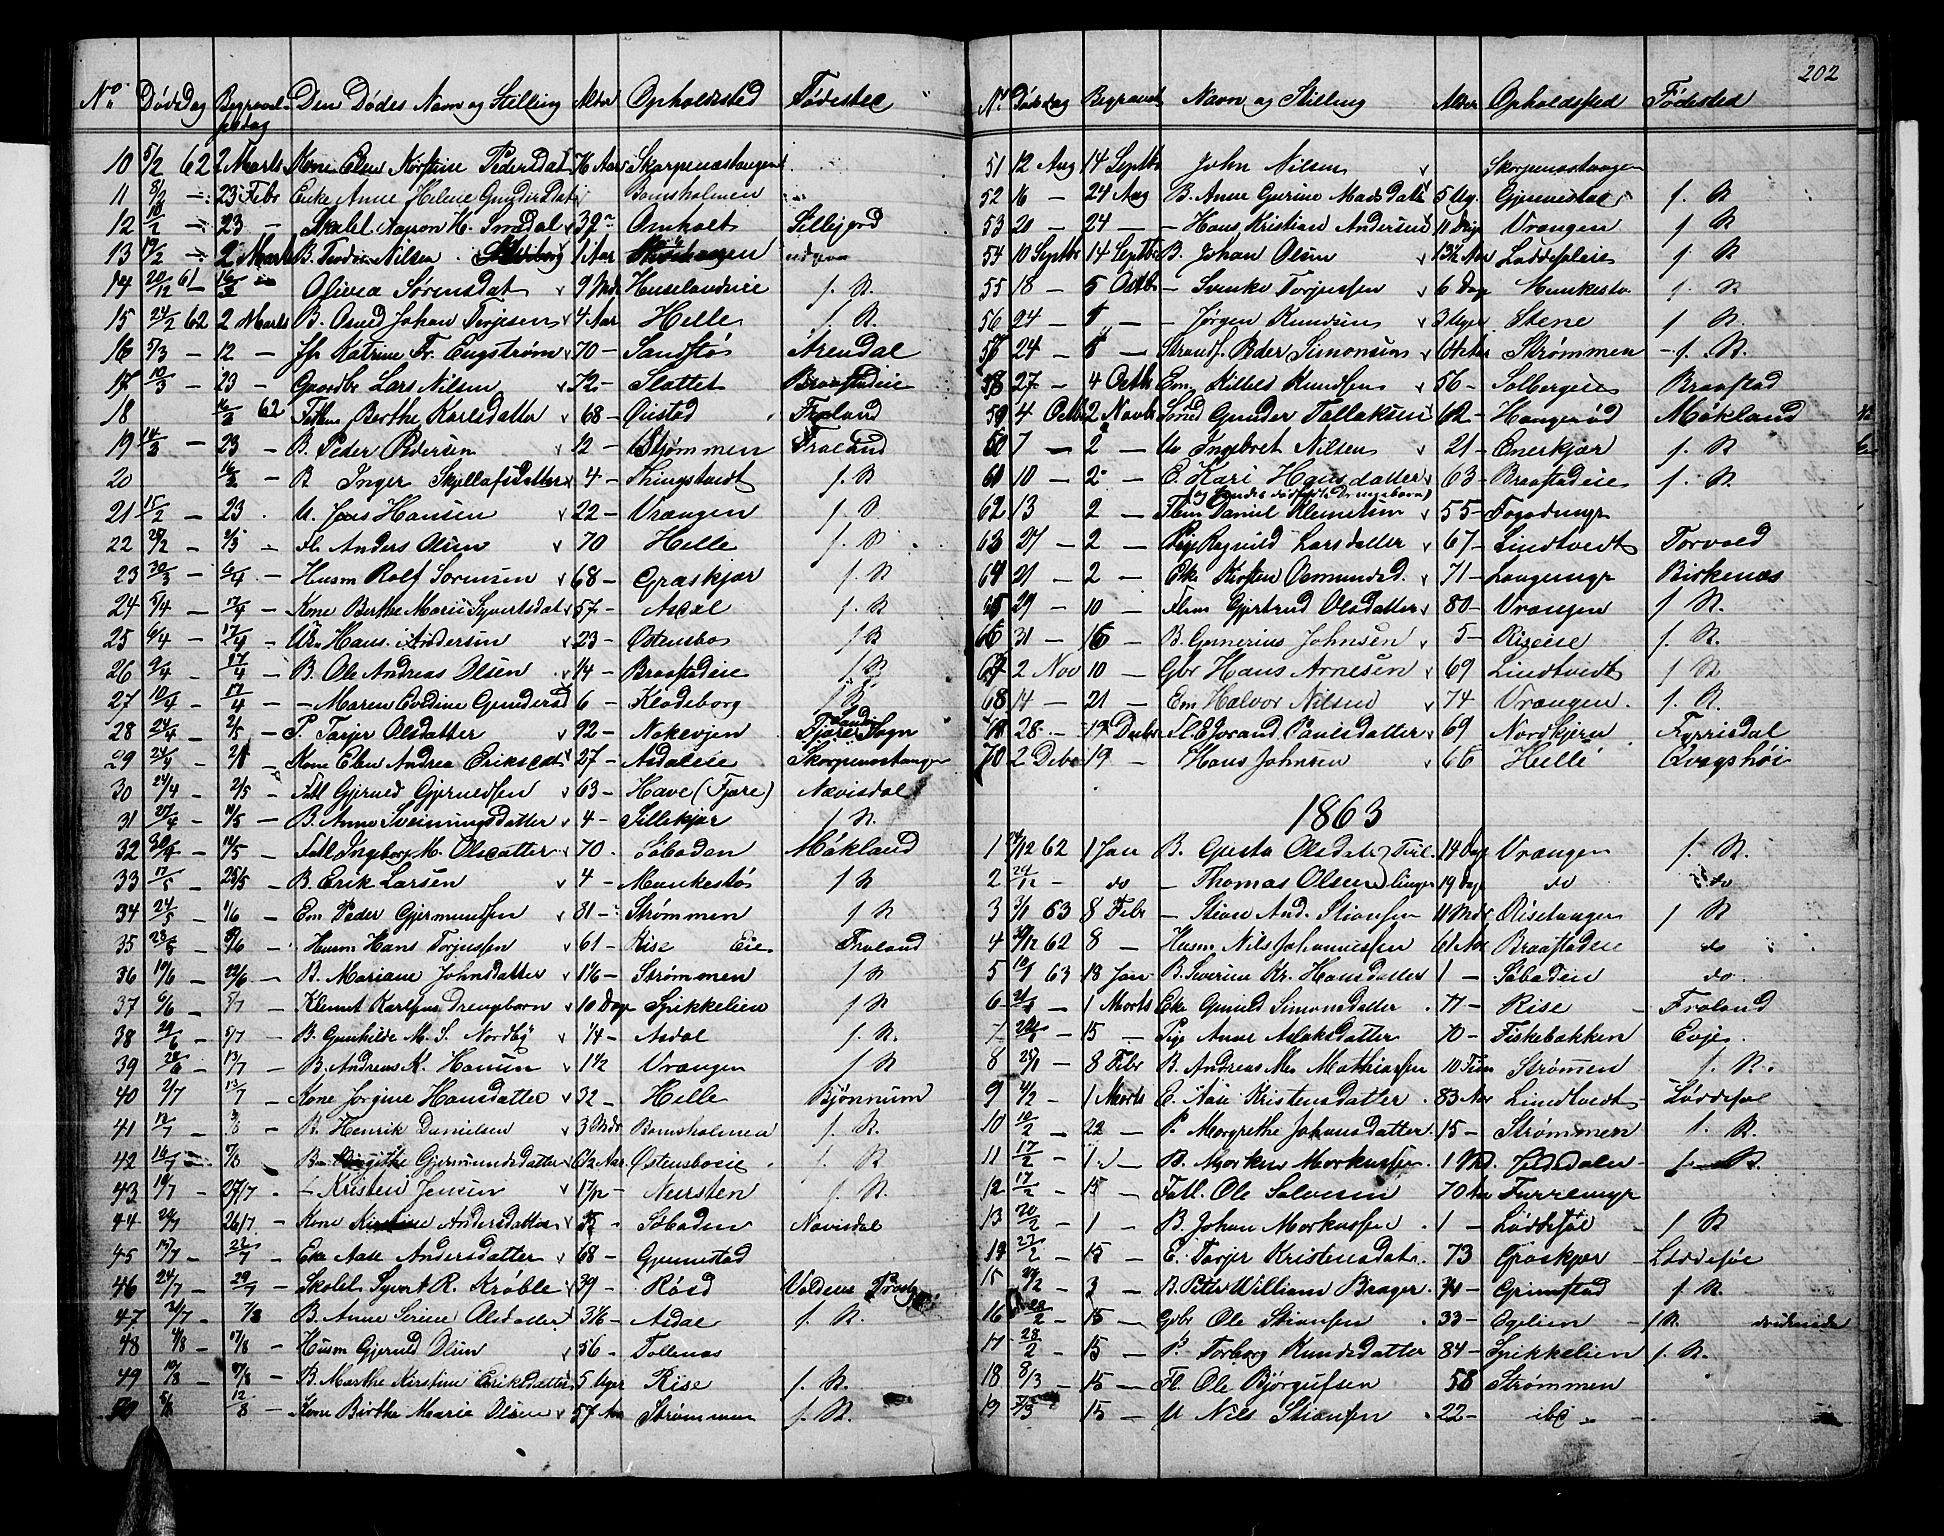 No Dødsdag Begravelsesdag Den Dødes Navn og Stilling Alder Opholdssted Fødested
10 5/2 62 2 Marts Kone Elen Kirstine Pedersdat 76 Aar Skarpenæstangen
11 8/2 - 23 Febr Enke Anne Helene Gundersdat Bomsholmen
12 10/2 - 23 - Omholt Sillejord
13 19/2 - 2 Marts B. Nilsen 1 Aar
14 20/12 61 - Olivea Sørensdat 9 Mdr Huselandeie f. R.
15 24/2 62 2 Marts B. Osned Johan Terjesen 4 Aar Helle f R.
16 5/3 - 12 - Jfr Katrine Fr. Engstrøm 70 - Sandstø Arendal
17 10/3 - 23 - Gaardbr Lars Nilsen 72 - Slottet Braastadeie
18 62 Berthe Karlsdatter 68 - Øiestad Froland
19 14/3 - 23 - B. Peder Pedersen 12 - Strømmen Froland
20 - B Inger 4 - Thingstvedt f. R.
21 15/2 - 23 - U. Jens Hansen 22 - Vrængen f R.
22 - Fl Anders Olsen 70 Helle f. R.
23 30/3 - 6/4 - Husm Rolf Sørensen 68 - Græskjær f. R
24 5/4 - 17/4 - Kone Berthe Marie Syvertsdat 57 - Asdal f R.
25 6/4 - 17/4 - Hans Andersen 23 - Østensbo f R
26 9/4 - 17/4 - B. Ole Andreas Olsen 14 - Braastadeie f. R
27 10/4 - 17/4 - - Maren Evdine Gundersd 6 - Klodeborg f. R.
28 24/4 - 2/5 - P. Tarjer Olsdatter 92 - Nokevjen Fjære Sogn
29 24/4 - - Kone Elen Andrea Eriksdat 27 - Asdaleie Skarpenæstangen
30 24/4 - 2/5 - Gjerued Gjeruldsen 63 - Have (Fjære) Nævisdal
31 27/4 - 11/5 - B. Anne Sveiningsdatter 4 - Sillekjær f R.
32 30/4 - 11/5 - Fatl Ingeborg M. Olsdatter 70 - Søboden Møkland
33 17/5 - 25/5 - B. Erik Larsen 4 - Munkestø f R
34 24/5 - 1/6 - Em Peder Gjermundsen 81 - Strømmen f R
35 - - Husm Hans Torjussen 61 - Rise Eie Froland
36 19/6 - 22/6 - B. Mariane Johnsdatter 1 1/6 - Strømmen f R
37 6/6 - 5/7 - Klemet Karlsens Drengebarn 10 Dage Spikkelien f R
38 - 5/7 - B. Gunhilde M. S. Nordby 1/4 - Asdal f. R.
39 - 13/7 - B. Andreas K. Hansen 1 1/2 - Vrængen f R
40 2/7 - 13/7 - Kone Jørgine Hansdatter 32 - Helle Bjønnum
41 - - B. Henrik Danielsen 3 Mdr Bomsholmen f. R.
42 - - Birgithe Gjermundsdatter Østensboeie f. R
43 19/7 - 27/7 - Kristen Jensen - Neersten f. R.
44 - 26/7 - Kone Kirstine Andersdatter - Søboden Nævisdal
45 - - Eke Aase Andersdatter 68 - Gjennestad
46 24/7 - - Skolel Syvert R. Krøble 39 - Røed
47 - 7/8 B. Anne Serene Olsdatter 3 1/6 - Asdal f. R.
48 4/8 - 17/8 - Husm Gjeruld Olsen 56 - Follenæs
49 10/8 - 17/8 - B. Marthe Kirstine Eriksdatter 5 Uger Rise f. R.
50 5/8 - 12/8 - Kone Birthe Marie Olsen 57 Aar Strømmen f. R.
202
No Dødsdag Begravet Navn og Stilling Alder Opholdssted Fødested
51 12 Aug 14 Septbr John Nilsen Skarpenæstangen
52 16 - 24 Aug B. Anne Gurine Madsdatt 5 Ug. Gjennestad f. R
53 20 - 24 - - Hans Kristian Andersen 11 Dage Vrængen f R
54 10 Septbr 14 Septbr B. Johan Olsen 13 1/2 Aar Løddesøleie f. R
55 18 - 5 Octbr - Svenke Torjussen 6 Dage Munkestø f. R
56 24 - - Jørgen Knudsen 3 Uger Stene f. R
57 24 - - Strandf. Peder Simonsen 64 Aar Strømmen - f. R.
58 27 - 4 Octbr Em Kittel Knudsen 56 - Solbergeie Braastad
59 4 Octbr 2 Novbr Gunder Tallaksen 62 - Haugerød Møkland
60 7 - 2 - U Ingebret Nilsen 21 - Enerkjær f. R
61 10 - 2 - E. Kari Hansdatter 63 - Braastadeie f. R.
62 13 2 - Daniel Klemetsen 55 - Fogedmyr
63 27 - 2 - Pige Ragnild Larsdatter 67 - Lindtvedt
64 21 - 2 - Eke Kirsten Osmundsd. 71 - Langemyr Birkenæs
65 29 - 10 - Gjertrud Olsdatter 80 - Vrængen f R.
66 31 - 16 - B. Gunerius Johnsen 5 - Riseeie f. R.
67 2 Nov 10 - Gbr Hans Arnesen 69 Lindtvedt f R
68 14 - 21 - Em Halvor Nilsen 74 Vrængen f. R.
69 28 - 19 Debr Jorand Paulsdatter 69 Nordkjern Fyrrisdal
70 2 Debr 19 - Hans Johnsen 66 Helle Qvagshøi
1863
1 62 1 Jan B. Gusta Olsdat Tvil- 14 Dage Vrængen f. R.
2 - do - Thomas Olsen linger 19 Dage do do
3 3/1 63 8 Febr - Stian And. Stiansen 11 Mdr Risetangen f R
4 62 8 - Husm Nils Johannessen 61 Aar Braastadeie do
5 63 18 Jan B. Severine Kr. Hansdatter 1 - Søboden do.
6 - 1 Marts Eke Gunild Simonsdatter 77 - Rise - Froland
7 - 15 - Pige Anne Aslaksdatter 70 - Fiskebakken Evje.
8 25/1 - 8 Febr B. Andreas Mathiassen 10 Tim Strømen f. R.
9 4/2 - 1 Marts E. Kristensdatter 83 Aar Lindtvedt - Løddesøl
10 10/2 - 22 - P. Margrethe Johansdatter 15 - Strømmen f. R.
11 17/2 - 1 - B. Marken Markussen 1 Md. f. R.
12 17/2 - 15 - Fatl. Ole Salvesen 70 Aar Furremyr
13 20/2 - 1 - B. Johan Markussen 1 - Løddesøl - f R
14 27/2 - 15 - E. Terjer Kristensdat 73 Græskjær Løddesøl
15 - 3 - B. Peter William Brager Grimstad f R.
16 - 15 - Gbr Ole Stiansen 33 - Egelien - f R.
17 28/2 - 15 - P. Torborg Knudsdatter 84 - Spikkelien f. R.
18 8/3 - 15 - Fl. Ole Bjørgufsen 58 Strømmen
19 - 15 - U Nils Stiansen 22 - ibd -